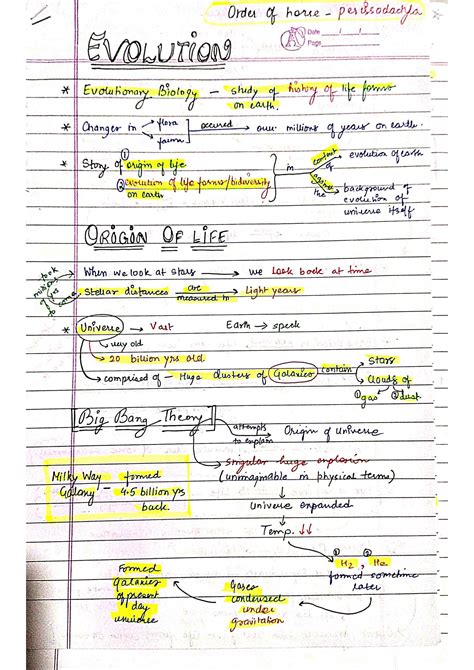 Order of horse - perissodactyla
Date
Page
EVOLUTION
* Evolutionary Biology - study of history of life forms
on earth.
* Changes in flora occured over millions of years on earth.
fauna
* Story of ① origin of life in context of evolution of earth
② evolution of life forms/biodiversity
on earth
against the background of
evolution of
universe itself
ORIGIN OF LIFE
took
millions
of yrs
to come
When we look at stars → we look back at time
Stellar distances are measured in → Light years
* Universe → Vast Earth → speck
→ very old
→ 20 billion yrs old.
→ comprised of - Huge clusters of Galaxies contain → Stars
→ Clouds of
① gas ② dust
Big Bang Theory
attempts
to explain
Origin of Universe
Singular huge explosion
(unimaginable in physical terms)
Milky Way formed
Galaxy - 4.5 billion yrs
back.
Universe expanded
Temp. ↓↓
① ②
H2, He
formed sometime
later
Gases
condensed
under
gravitation
Formed
galaxies
of present
day
universe